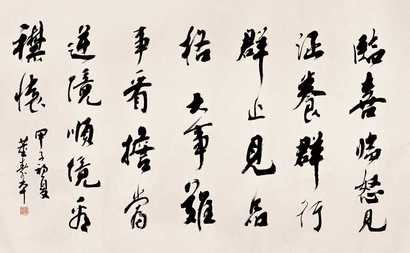 臨喜临怒見
涵養群行
群止見品
格大事難
事看擔當
逆境順境看
襟懷
甲子初夏